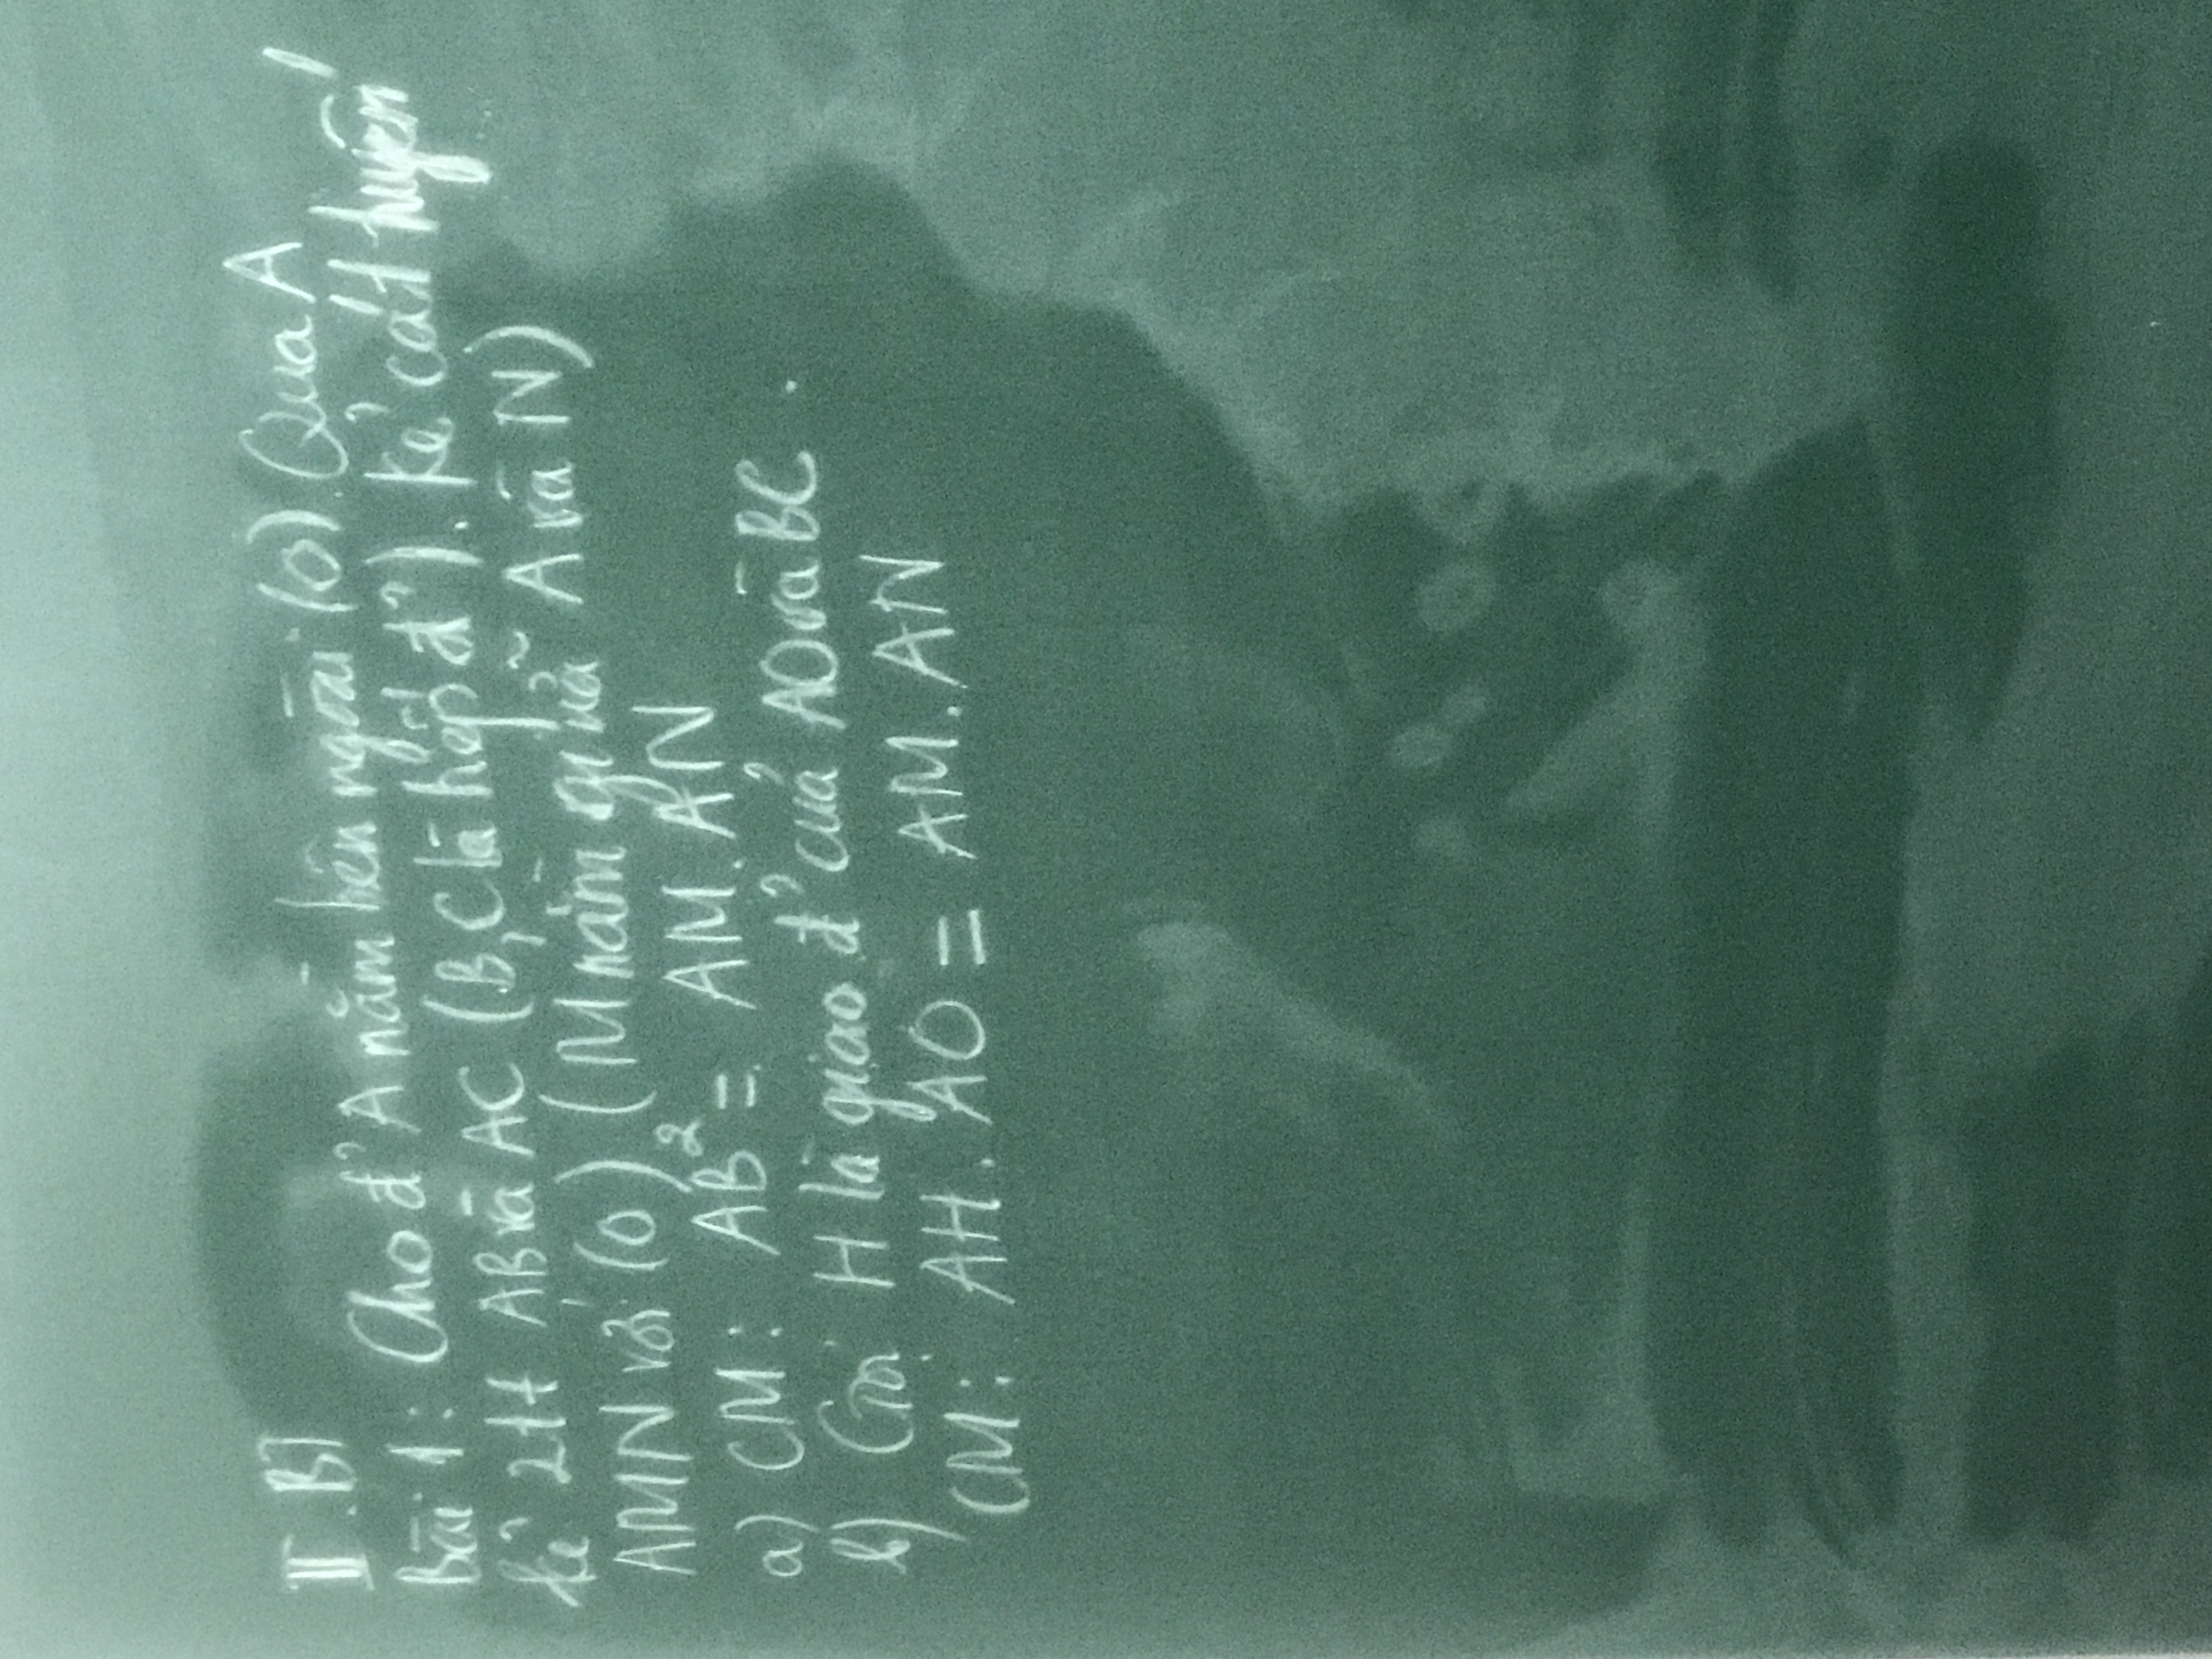 II. BT
Bài 1: Cho đ' A nằm bên ngoài (O). Qua A
kẻ 2tt AB và AC (B, C là tiếp đ'). Kẻ cát tuyến
AMN với (O) (M nằm giữa A và N)
a) CM: AB² = AM. AN
b) Gọi H là giao đ' của AO và BC.
CM: AH. AO = AM. AN